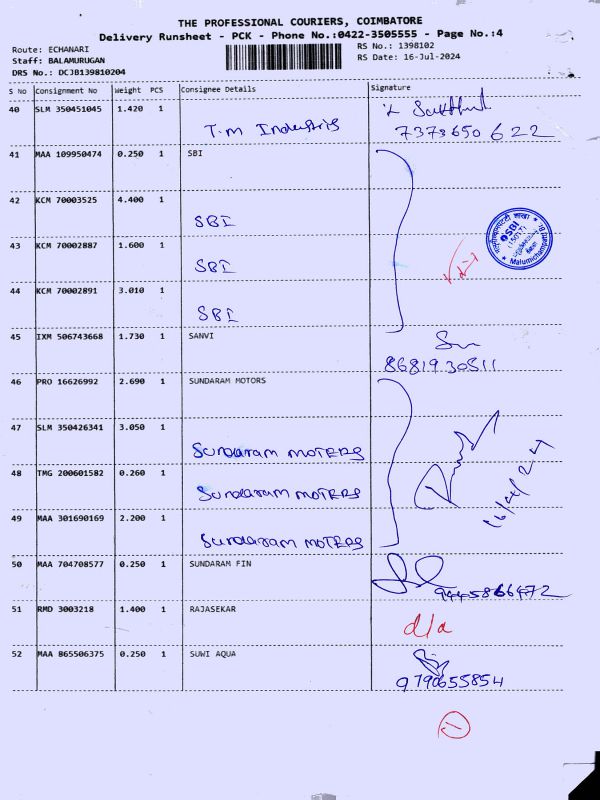 THE PROFESSIONAL COURIERS, COIMBATORE
Delivery Runsheet - PCK - Phone No.:0422-3505555 - Page No.:4
Route: ECHANARI
Staff: BALAMURUGAN
DRS No.: DCJB139810204
RS No.: 1398102
RS Date: 16-Jul-2024
S No Consignment No Weight PCS Consignee Details Signature
40 SLM 350451045 1.420 1 T.m Industris
7373650622
41 MAA 109950474 0.250 1 SBI
42 KCM 70003525 4.400 1 SBI
43 KCM 70002887 1.600 1 SBI
SBI
Malumichampatti
44 KCM 70002891 3.010 1 SBI
45 IXM 506743668 1.730 1 SANVI
8681930511
46 PRO 16626992 2.690 1 SUNDARAM MOTORS
47 SLM 350426341 3.050 1 Sundaram MOTERS
48 TMG 200601582 0.260 1 Sundaram MOTERS
49 MAA 301690169 2.200 1 Sundaram MOTERS
50 MAA 704708577 0.250 1 SUNDARAM FIN
9445866472
51 RMD 3003218 1.400 1 RAJASEKAR d/a
52 MAA 865506375 0.250 1 SUWI AQUA
9790655854
1